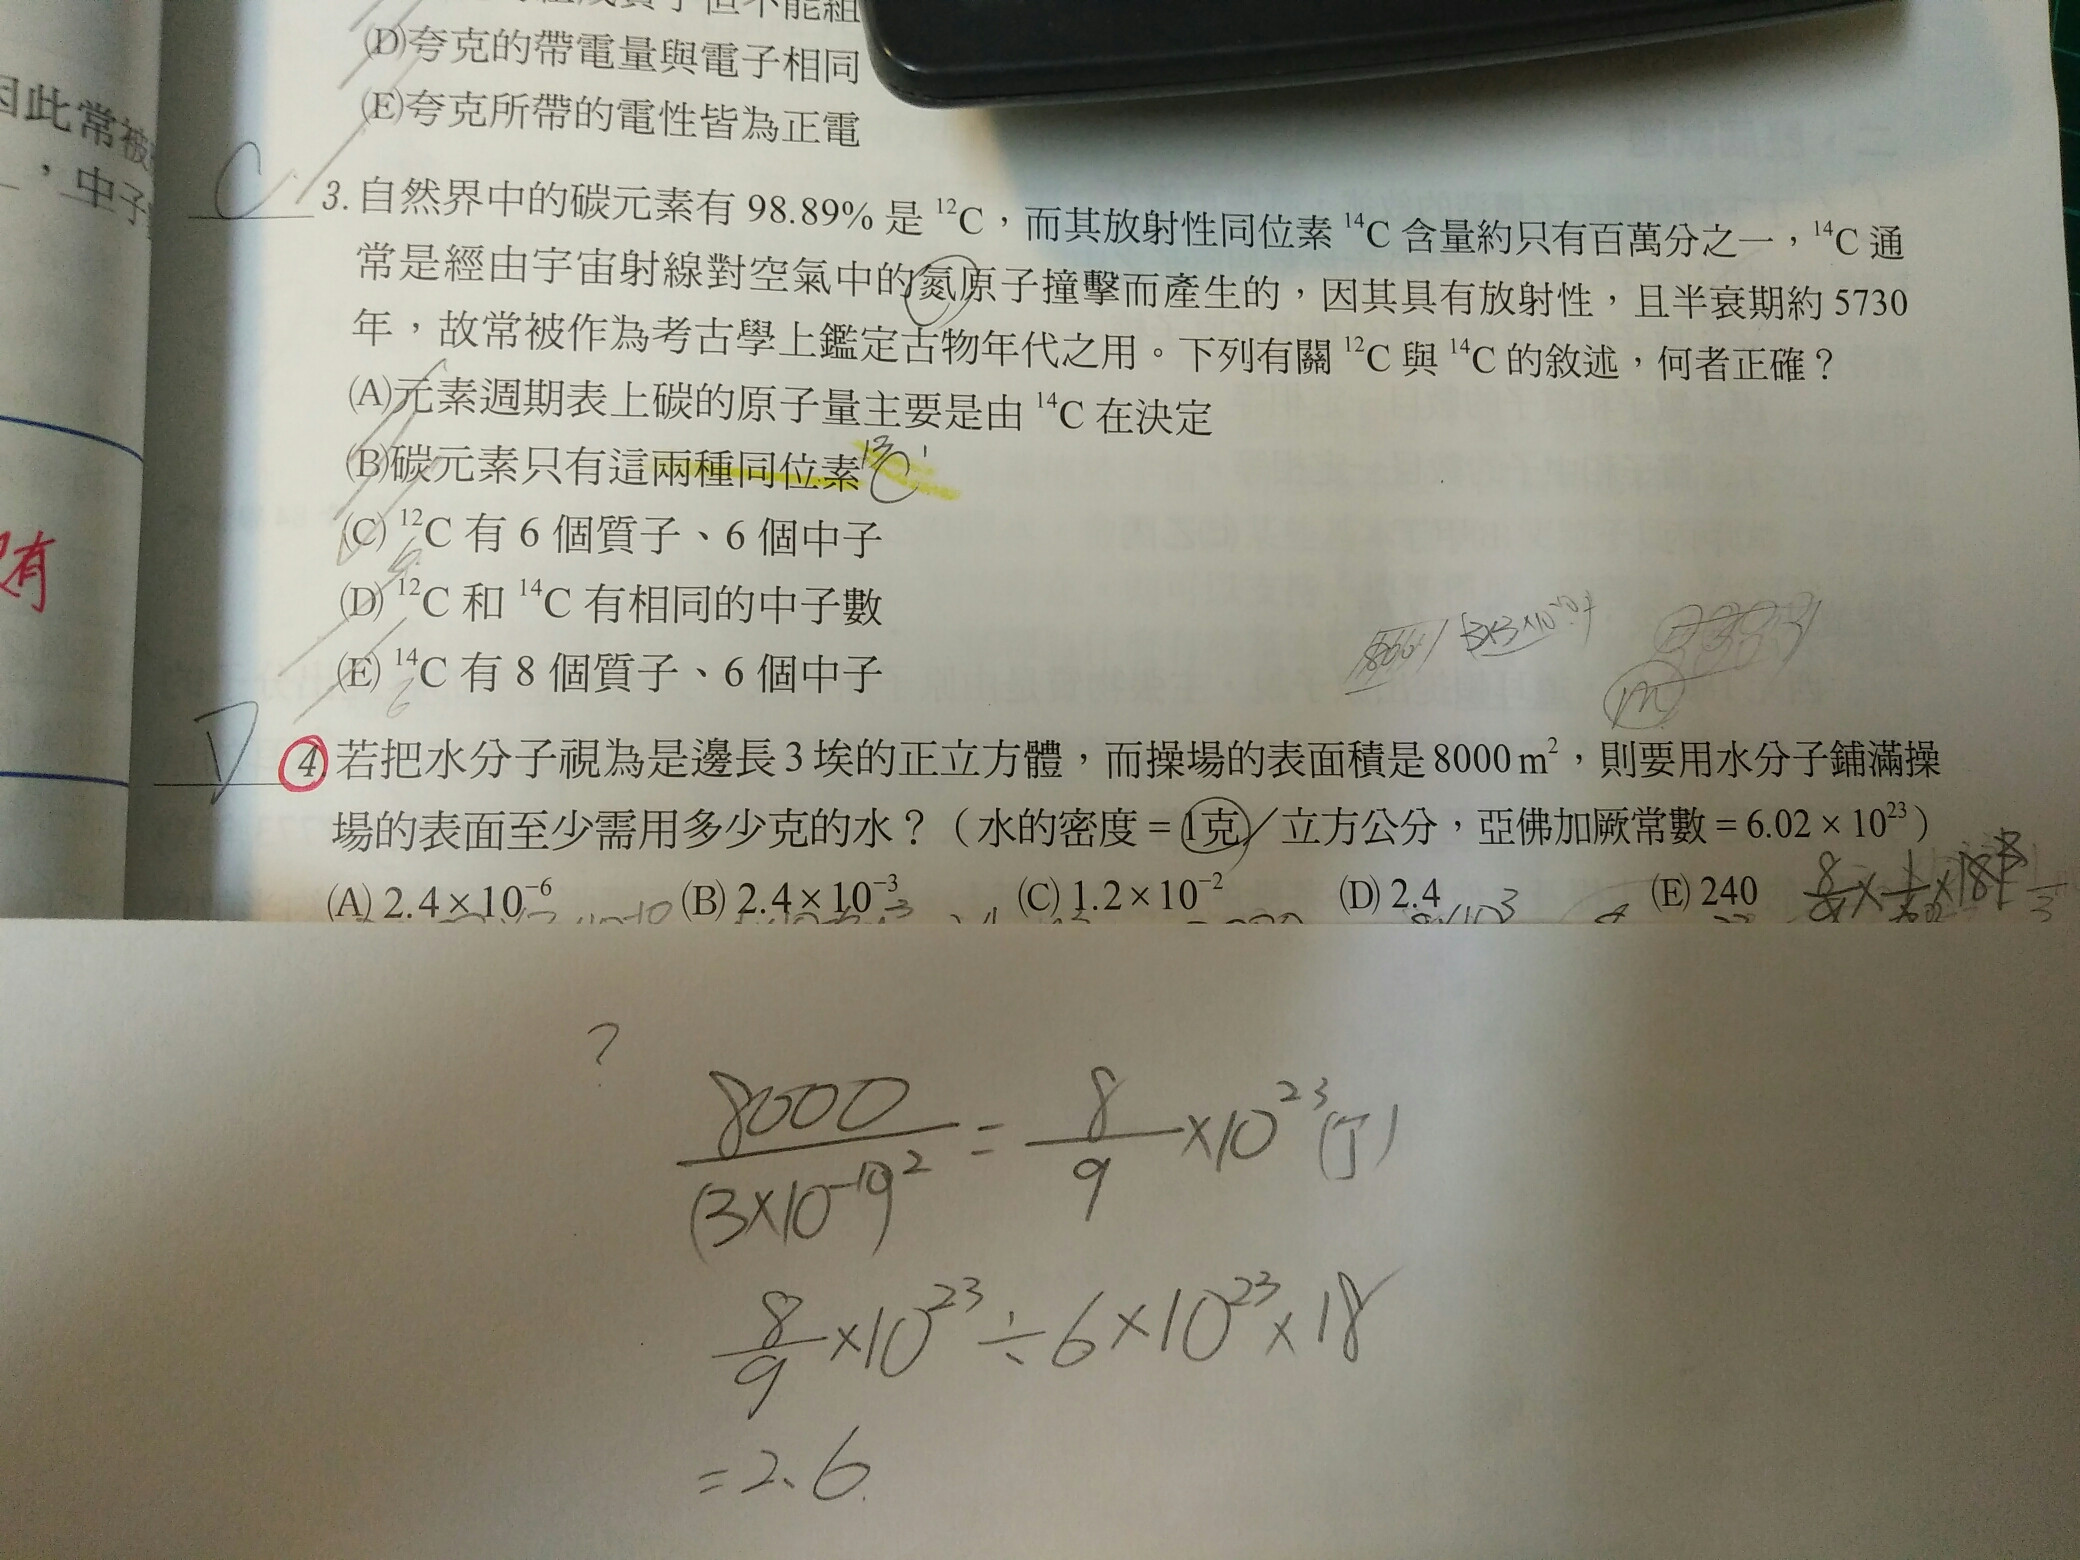 (D)夸克的帶電量與電子相同
(E)夸克所帶的電性皆為正電
因此常被
,中子
有
C 3.自然界中的碳元素有 98.89% 是 ¹²C,而其放射性同位素 ¹⁴C 含量約只有百萬分之一,¹⁴C 通
常是經由宇宙射線對空氣中的氮原子撞擊而產生的,因其具有放射性,且半衰期約 5730
年,故常被作為考古學上鑑定古物年代之用。下列有關 ¹²C 與 ¹⁴C 的敘述,何者正確?
(A)元素週期表上碳的原子量主要是由 ¹⁴C 在決定
(B)碳元素只有這兩種同位素 ¹³C
(C) ¹²C 有 6 個質子、6 個中子
(D) ¹²C 和 ¹⁴C 有相同的中子數
6
(E) ¹⁴C 有 8 個質子、6 個中子
6
m
D 4.若把水分子視為是邊長 3 埃的正立方體,而操場的表面積是 8000 m²,則要用水分子鋪滿操
場的表面至少需用多少克的水?(水的密度 = 1克/立方公分,亞佛加厥常數 = 6.02 × 10²³)
(A) 2.4 × 10⁻⁶ (B) 2.4 × 10⁻³ (C) 1.2 × 10⁻² (D) 2.4 (E) 240
?
8000/(3×10⁻¹⁰)² = 8/9 ×10²³(丁)
8/9 ×10²³ ÷ 6×10²³ × 18
= 2.6